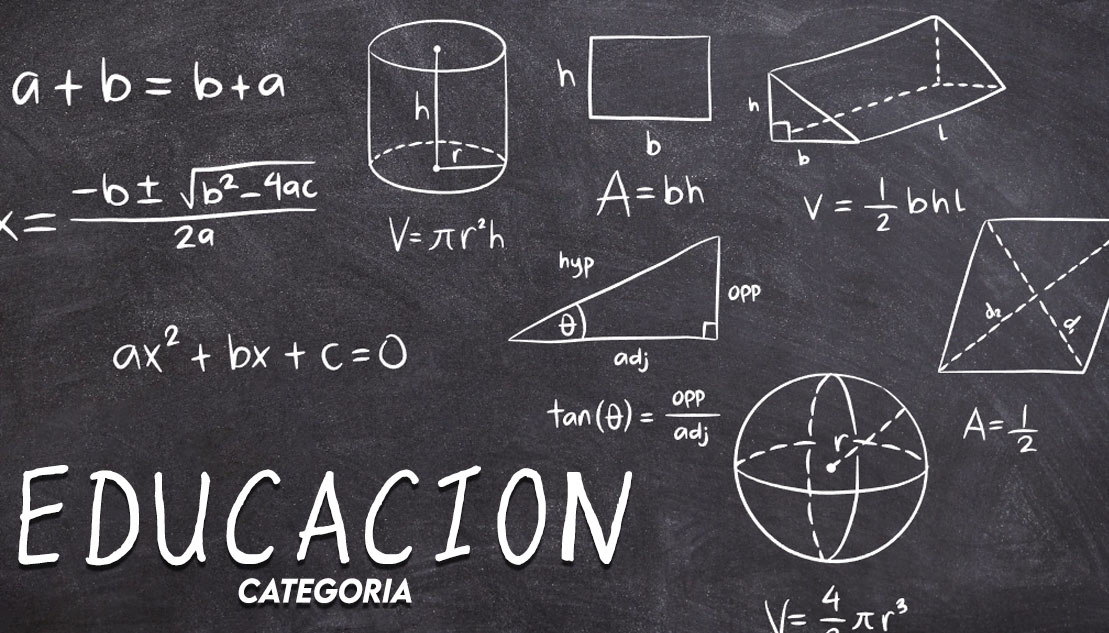 a + b = b+a
x = -b ± √b²-4ac
2a
ax² + bx + c = 0
h
r
V= πr²h
h
b
A = bh
h
b
l
V = 1/2 bhl
hyp
opp
θ
adj
tan(θ) = opp/adj
d₂
d₁
A= 1/2
r
V= 4 πr³
EDUCACION
CATEGORIA